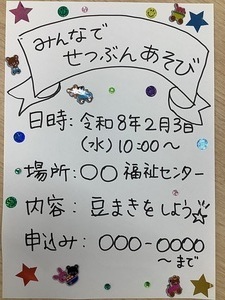 みんなで
せつぶんあそび
日時: 令和8年2月3日
(水) 10:00～
場所: ○○福祉センター
内容: 豆まきをしよう☆
申込み: ○○○-○○○○
～まで